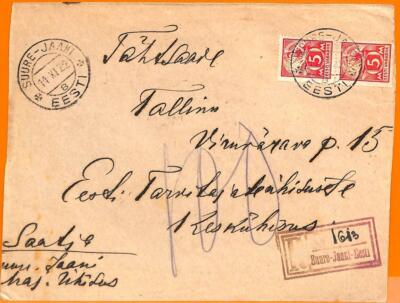 SUURE-JAANI
14 XI 25
B
EESTI
5 5
EESTI
Tähtsaade
Tallinn
Viruvärava p. 15
100
Eesti Tarvitajateühisuste
Keskühisus
Saatja
Jaani
Ühisus
1613
Suure-Jaani-Eesti